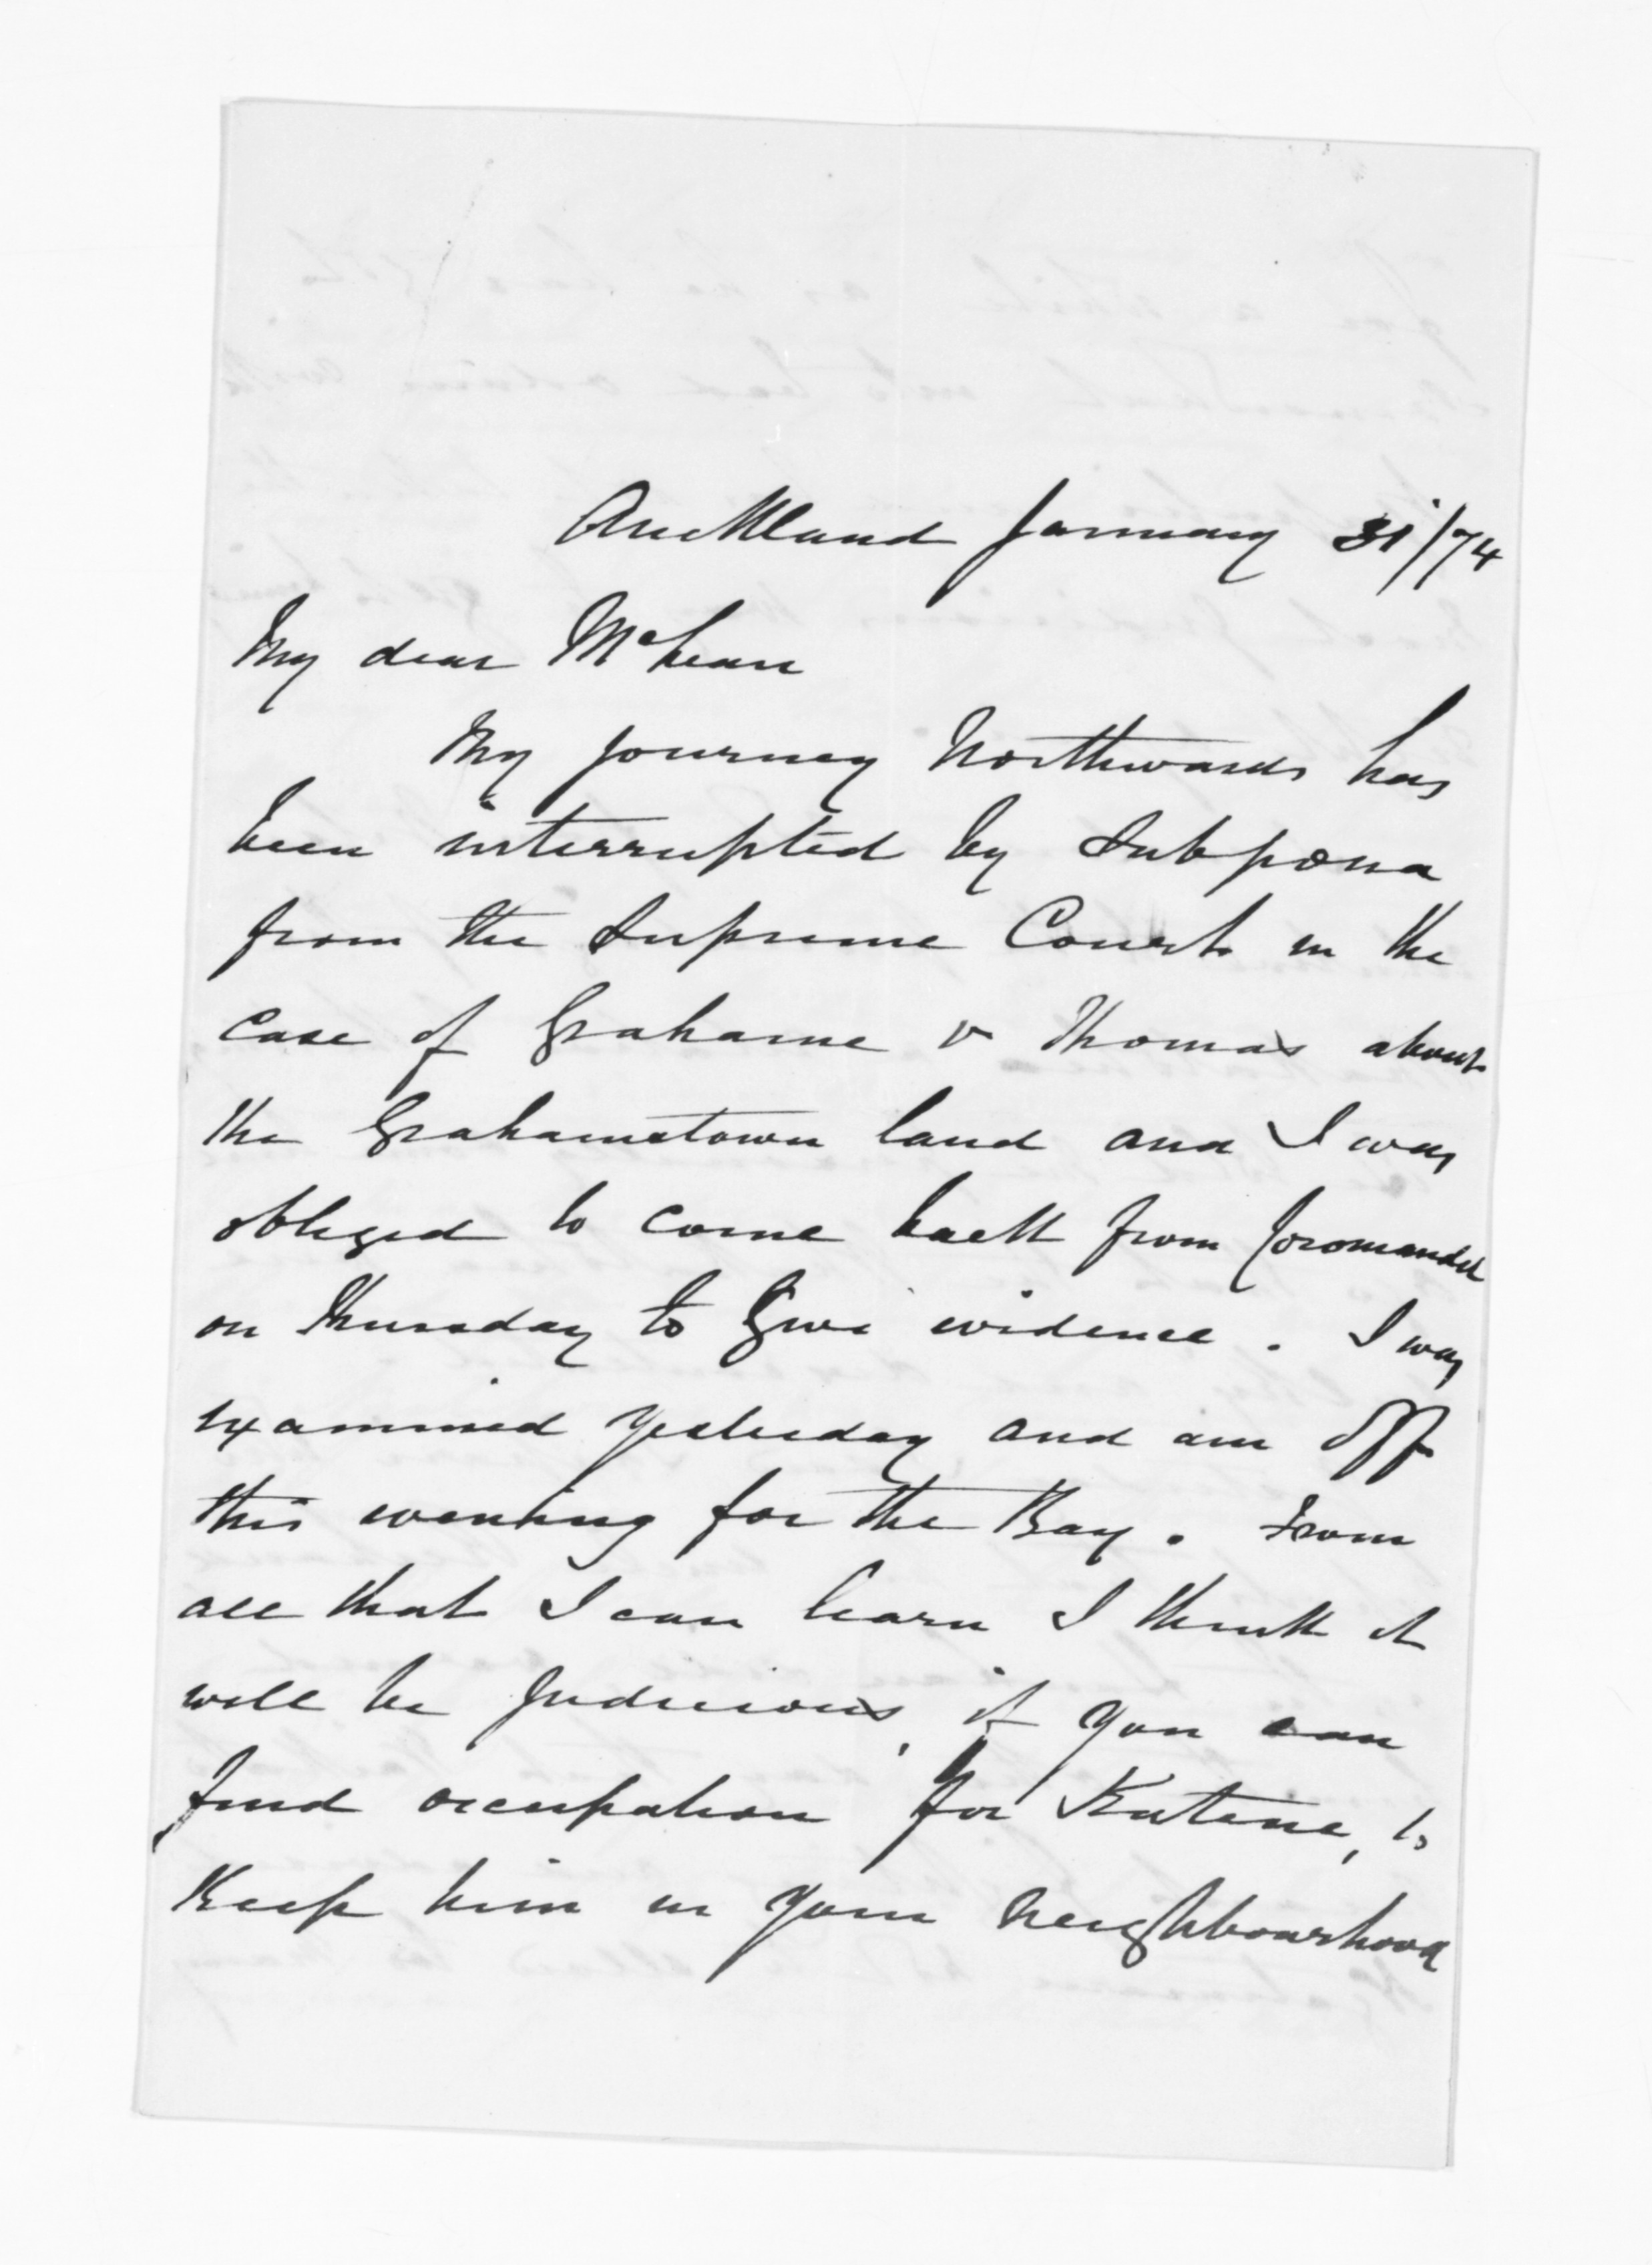 Auckland January 31/74
My dear McLean
My journey Northwards has
been interrupted by Subpoena
from the Supreme Court in the
case of Grahame v Thomas about
the Grahamstown land and I was
obliged to come back from Coromandel
on Thursday to Give evidence. I was
examined yesterday and am off
this evening for the Bay. From
all that I can learn I think it
will be Judicious, if you can
find occupation for Katene, to
Keep him in your neighbourhood